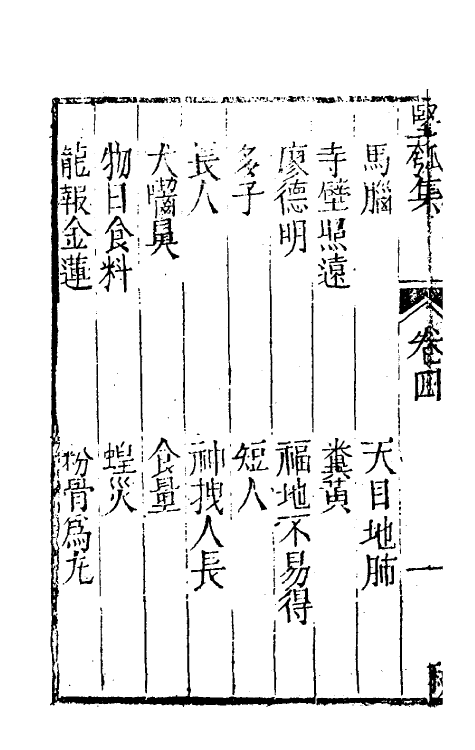 堅瓠集
卷四
一
馬腦
天目地肺
寺壁照遠
糞黃
廖德明
福地不易得
多子
短人
長人
神拽人長
犬嚙臭
食量
物日食料
蝗災
龍報金蓮
粉骨爲丸